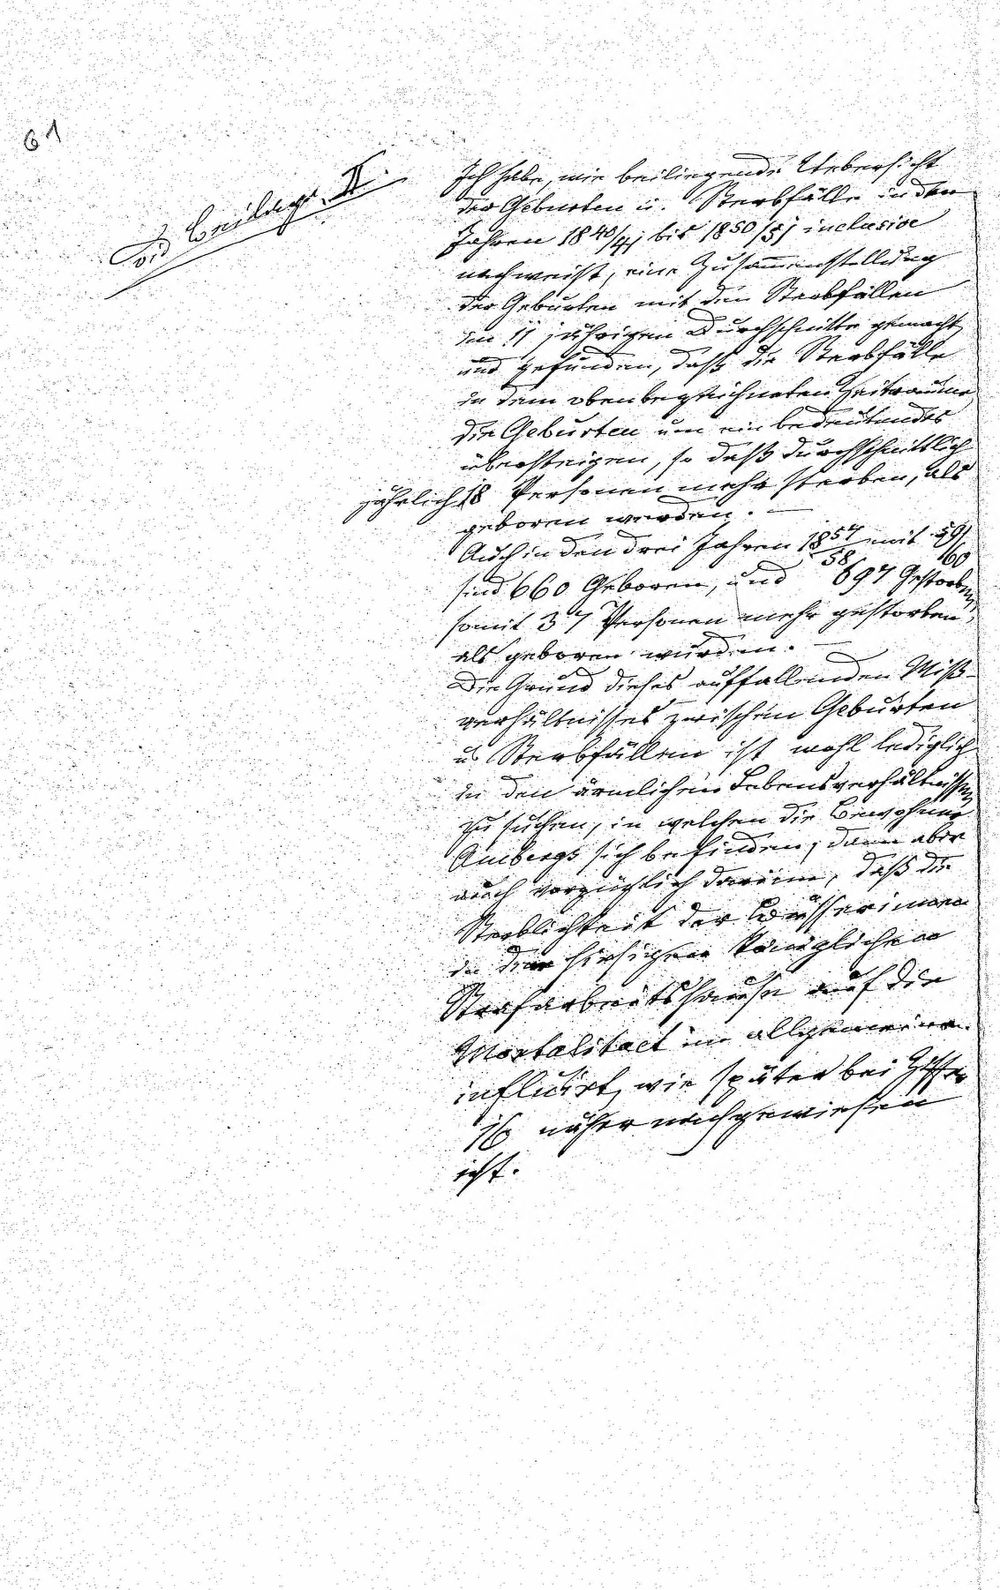 61
vid Beilage II.
Ich habe, wie beiliegende Uebersicht
der Geburten u. Sterbfälle in den
Jahren 1840/41 bis 1850/51 inclusive
nachweist, eine Zusammenstellung
der Geburten mit den Sterbfällen
im 11 jährigen Durchschnitte gemacht,
und gefunden, daß die Sterbfälle
in dem obenbezeichneten Zeitraume
die Geburten um ein bedeutendes
übersteigen, so daß durchschnittlich
jährlich 18 Personen mehr sterben, als
geboren werden. —
Auch in den drei Jahren 1857/58 mit 59/60
sind 660 Geboren, und 697 Gestorben,
somit 37 Personen mehr gestorben,
als geboren wurden. —
Die Grund dieses auffallenden Miß-
verhältnisses zwischen Geburten
u. Sterbfällen ist wohl lediglich
in den ärmlichen Lebensverhältnissen
zu suchen, in welchen die Bewohner
Ambergs sich befinden, dann aber
auch vorzüglich darinn, daß die
Sterblichkeit der Büsserinnen
in dem hiesigen königlichen
Strafarbeitshause auf die
Mortalitaet im allgemeinen
influirt, wie später bei Ziffer
16 näher nachgewiesen
ist.